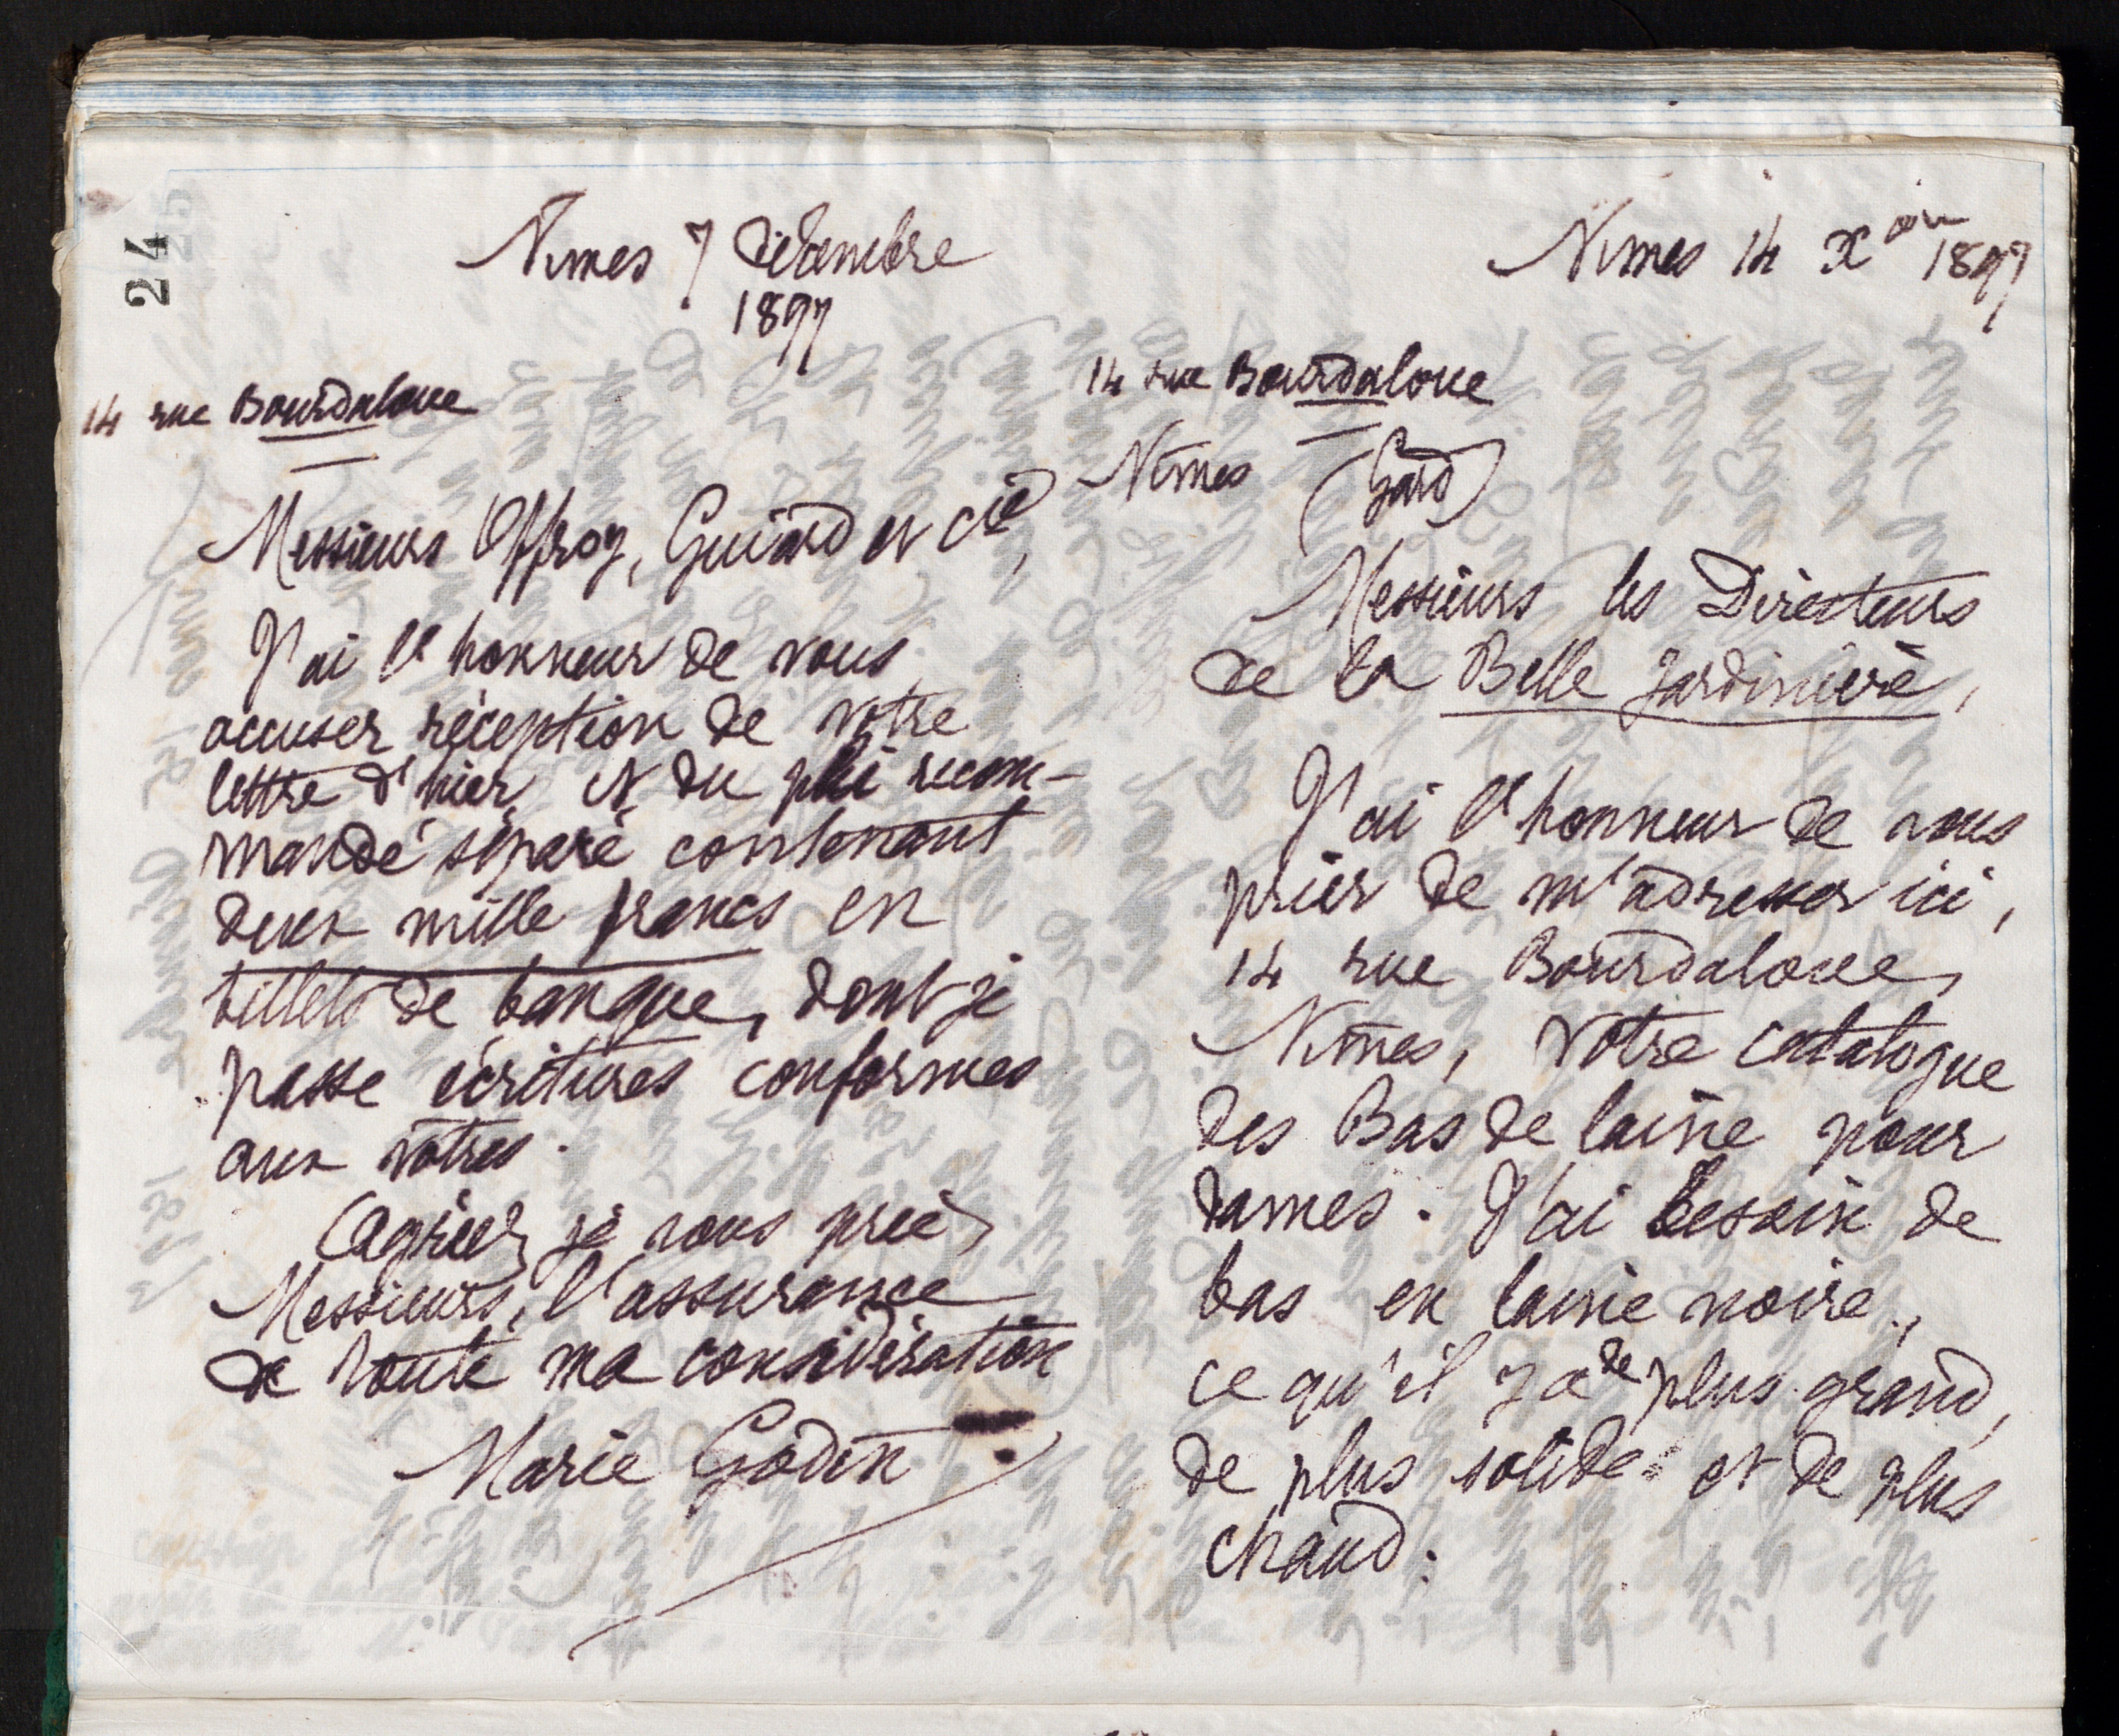 24
Nimes 7 décembre
1897
14 rue Bourdaloue
Messieurs Offroy, Guiard et Cie,
J'ai l'honneur de vous
accuser réception de votre
lettre d'hier, et du pli recom-
mandé séparé contenant
deux mille francs en
billets de banque, dont je
passe écritures conformes
aux vôtres.
Agréez je vous prie,
Messieurs, l'assurance
de toute ma considération
Marie Godin
Nimes 14 Xbre 1897
14 rue Bourdaloue
Nîmes (Gard)
Messieurs les Directeurs
de la Belle Jardinière,
J'ai l'honneur de vous
prier de m'adresser ici,
14 rue Bourdaloue,
Nîmes, votre catalogue
des Bas de laine pour
dames. J'ai besoin de
bas en laine noire,
ce qu'il y a de plus grand,
de plus solide et de plus
chaud.